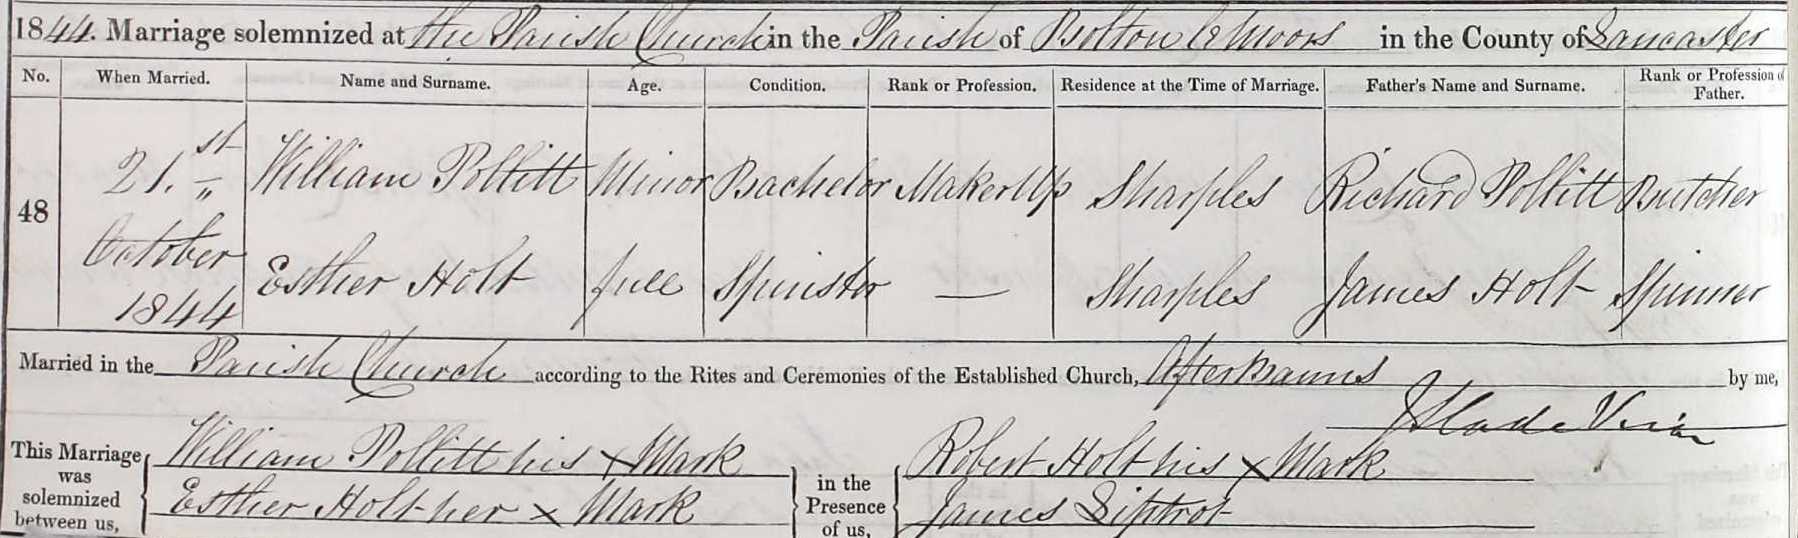 1844. Marriage solemnized at the Parish Church in the Parish of Bolton le Moors in the County of Lancaster
No. When Married. Name and Surname. Age. Condition. Rank or Profession. Residence at the Time of Marriage. Father's Name and Surname. Rank or Profession of Father.
48 21.st October 1844
William Pollitt Minor Bachelor Maker Up Sharples Richard Pollitt Butcher
Esther Holt full Spinster — Sharples James Holt Spinner
Married in the Parish Church according to the Rites and Ceremonies of the Established Church, After Banns by me,
J Slade Vicar
This Marriage was solemnized between us, William Pollitt his x Mark in the Presence of us, Robert Holt his x Mark
Esther Holt her x Mark James Siptrot